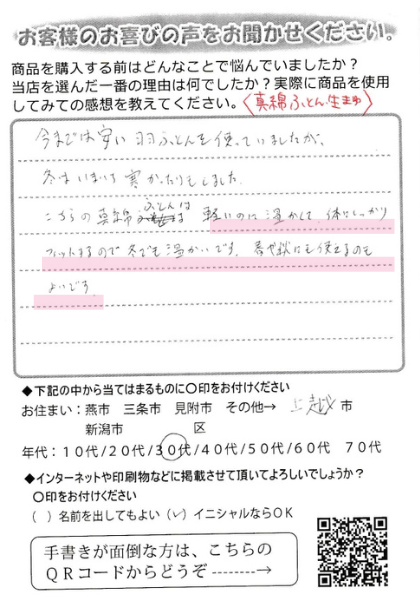 お客様のお喜びの声をお聞かせください。
商品を購入する前はどんなことで悩んでいましたか?
当店を選んだ一番の理由は何でしたか?実際に商品を使用
してみての感想を教えてください。〈真綿ふとん生まゆ〉
今までは安い羽ふとんを使っていましたが、
冬はいまいち寒かったりもしました。
こちらの真綿ふとんは軽いのに温かくて体にしっかり
フィットするので冬でも温かいです。春や秋にも使えるのも
よいです。
◆下記の中から当てはまるものに〇印をお付けください
お住まい:燕市 三条市 見附市 その他→ 上越市
新潟市 区
年代:10代/20代/30代/40代/50代/60代 70代
◆インターネットや印刷物などに掲載させて頂いてよろしいでしょうか?
〇印をお付けください
( )名前を出してもよい(✓)イニシャルならOK
手書きが面倒な方は、こちらの
QRコードからどうぞ-------->